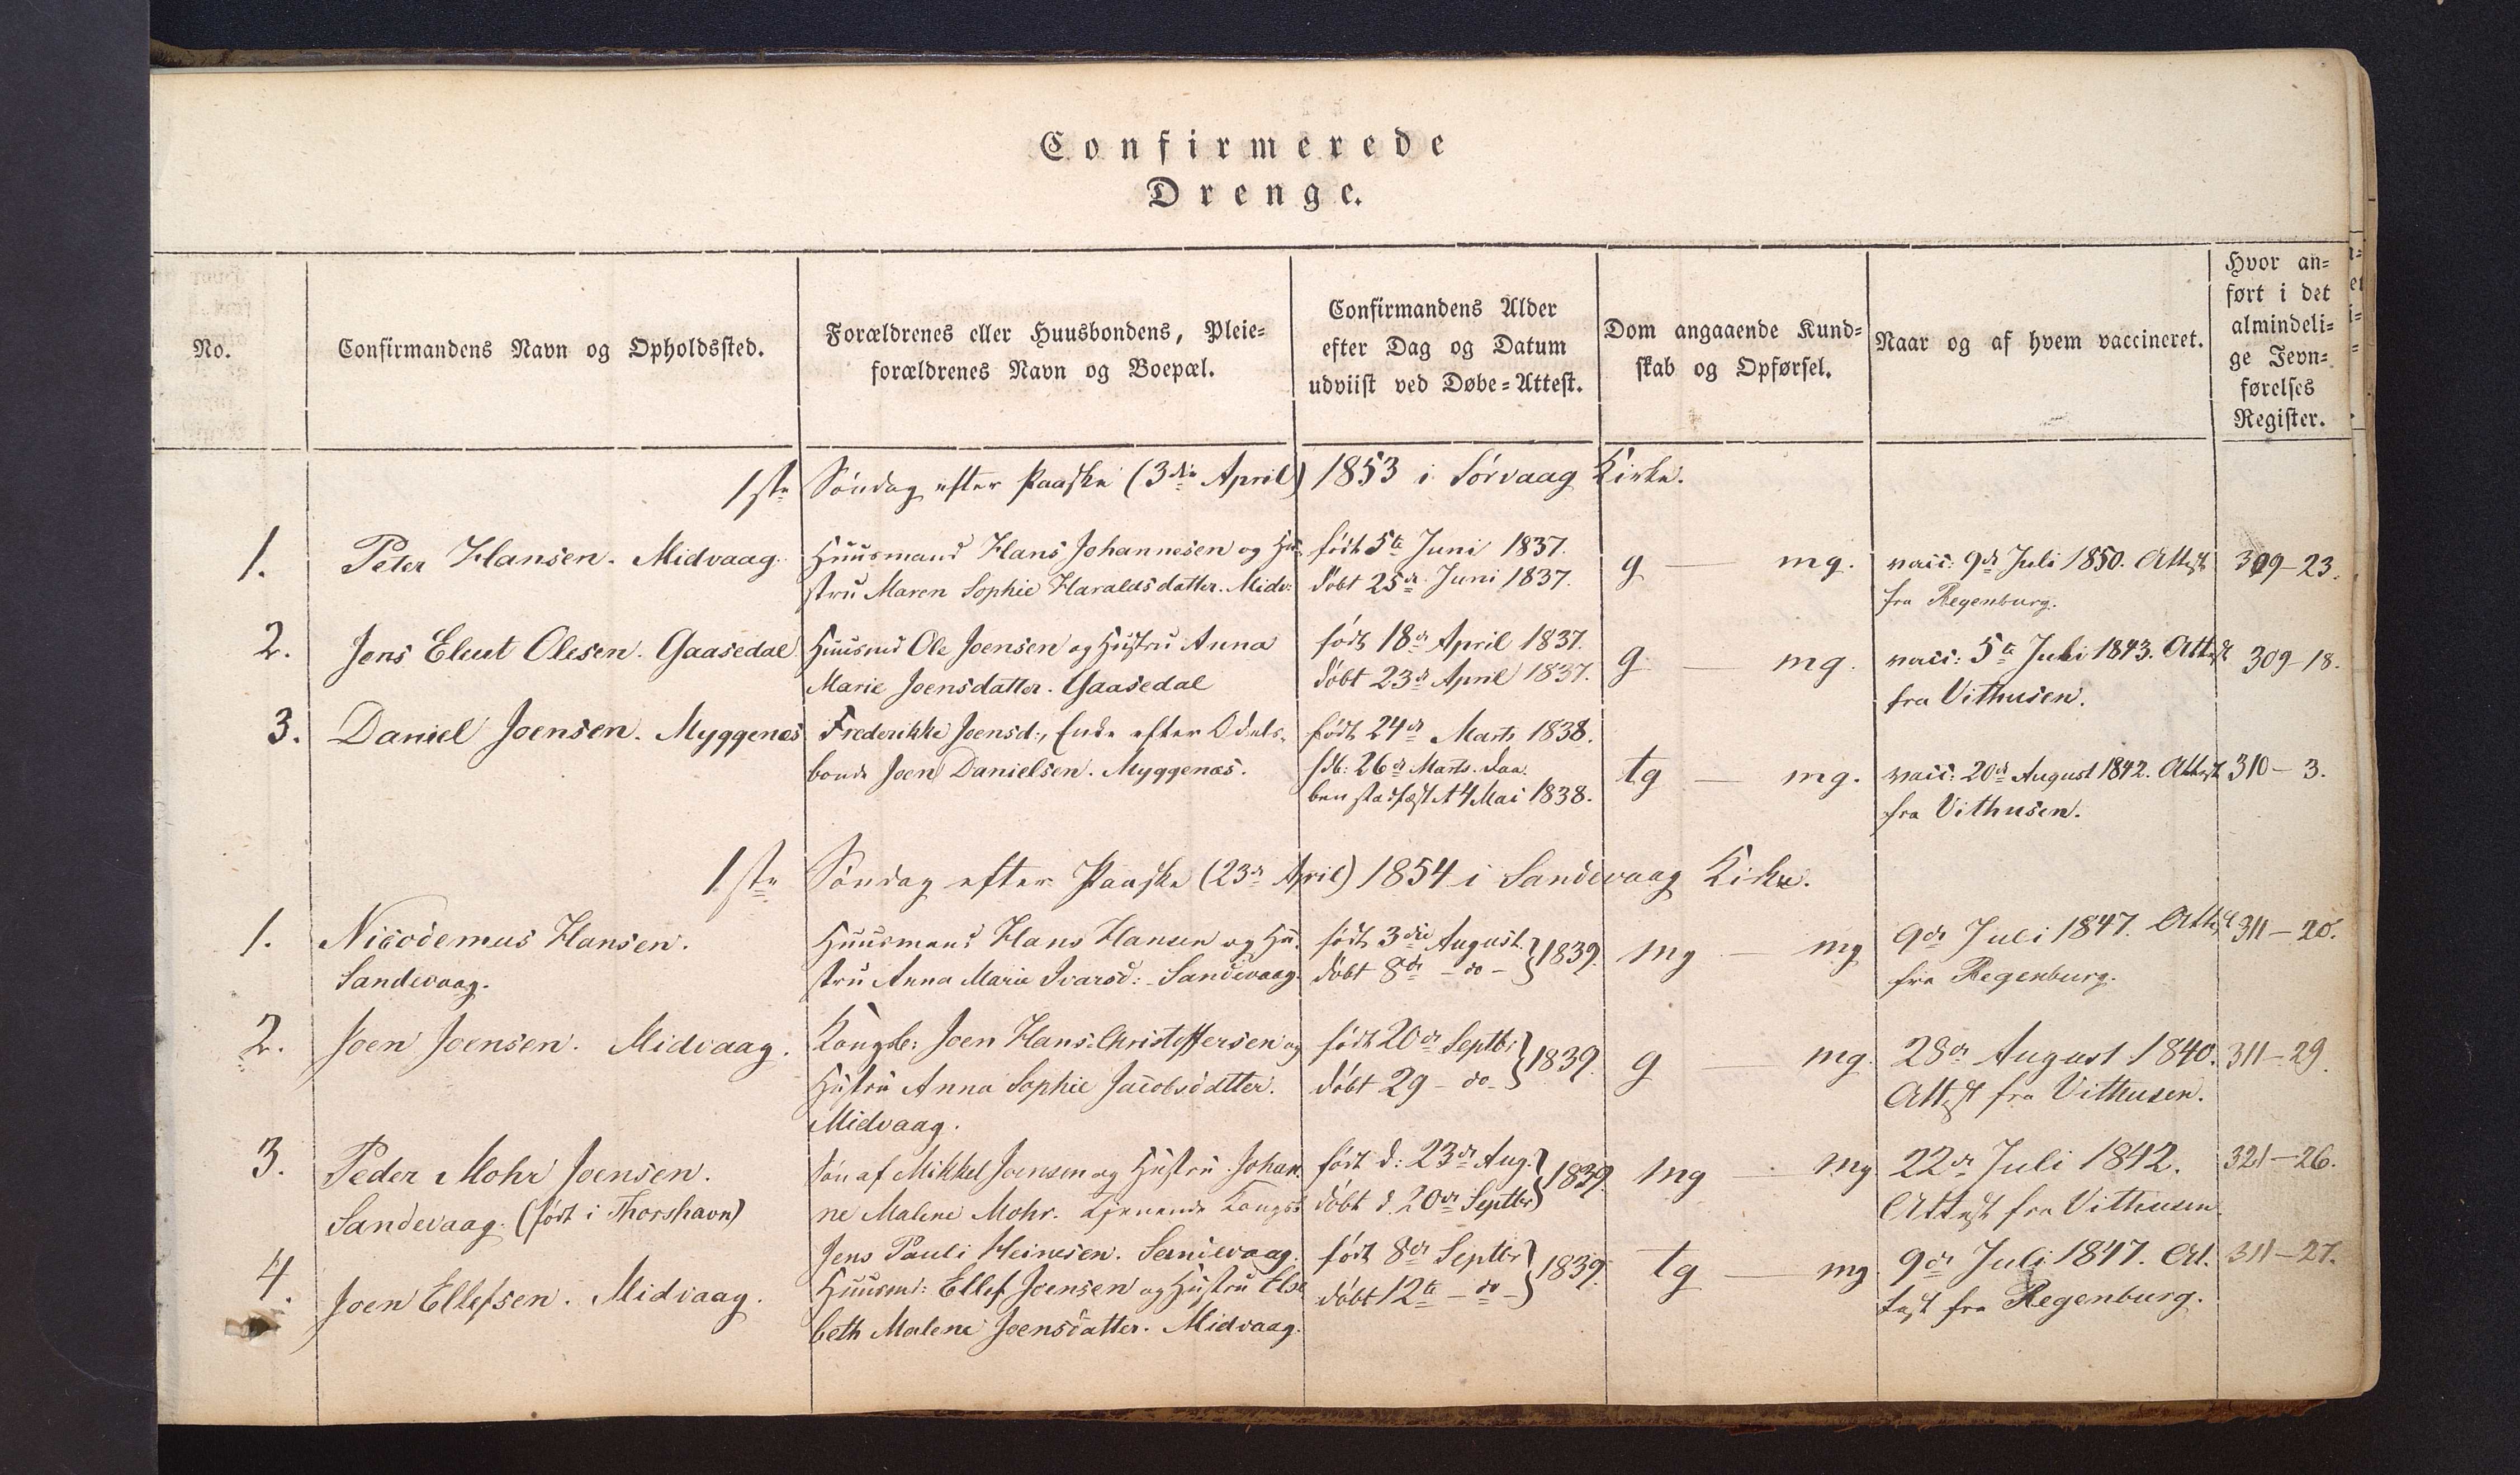 Confirmerede
Drenge.
No.
Confirmandens Navn og Opholdssted.
Forældrenes eller Huusbondens, Pleie=
forældrenes Navn og Boepæl.
Confirmandens Alder
efter Dag og Datum
udviist ved Døbe=Attest.
Dom angaaende Kund=
skab og Opførsel.
Naar og af hvem vaccineret.
Hvor an=
ført i det
almindeli=
ge Jevn=
førelses
Register.
1ste Søndag efter Paaske (3die April) 1853 i Sørvaag Kirke.
1.
Peter Hansen. Midvaag.
Huusmand Hans Johannesen og Hu-
stru Maren Sophie Haraldsdatter. Midv:
født 5te Juni 1837.
døbt 25de Juni 1837.
g — mg.
vacc: 9de Juli 1850. Attest
fra Regenburg.
309-23.
2.
Jens Elút Olesen. Gaasedal
Huusmd Ole Joensen og Hustru Anna
Marie Joensdatter. Gaasedal
født 18de April 1837.
døbt 23de April 1837.
g — mg.
vacc: 5te Juli 1843. Attest
fra Vithusen.
309-18.
3.
Daniel Joensen. Myggenæs
Frederikke Joensd:, Enke efter Odels-
bonde Joen Danielsen. Myggenæs.
født 24de Marts 1838.
hdb: 26de Marts. Daa-
ben stadfæstet 4 Mai 1838.
tg — mg.
vacc: 20de August 1842. Attest
fra Vithusen.
310-3.
1ste Søndag efter Paaske (23de April) 1854 i Sandevaag Kirke.
1.
Nicodemus Hansen.
Sandevaag.
Huusmand Hans Hansen og Hu-
stru Anna Marie Ivarsd: Sandevaag.
født 3die August
døbt 8de - do - } 1839.
mg — mg
9de Juli 1847. Attest
fra Regenburg.
311-20.
2.
Joen Joensen. Midvaag.
Kongsb: Joen Hans Christoffersen og
Hustru Anna Sophie Jacobsdatter.
Midvaag.
født 20de Septbr
døbt 29 - do - } 1839.
g — mg.
28de August 1840.
Attest fra Vithusen.
311-29.
3.
Peder Mohr Joensen.
Sandevaag. (født i Thorshavn)
Søn af Mikkel Joensen og Hustru Johan-
ne Malene Mohr. tjenende Kongsb
Jens Pauli Heinesen. Sandevaag.
født d: 23de Aug.
døbt d. 20de Septbr } 1839.
mg — mg
22de Juli 1842.
Attest fra Vithusen.
321-26.
4.
Joen Ellefsen. Midvaag.
Huusmd: Ellef Joensen og Hustru Else-
beth Malene Joensdatter. Midvaag.
født 8de Septbr
døbt 12te - do - } 1839.
tg — mg
9de Juli 1847. At-
test fra Regenburg.
311-27.